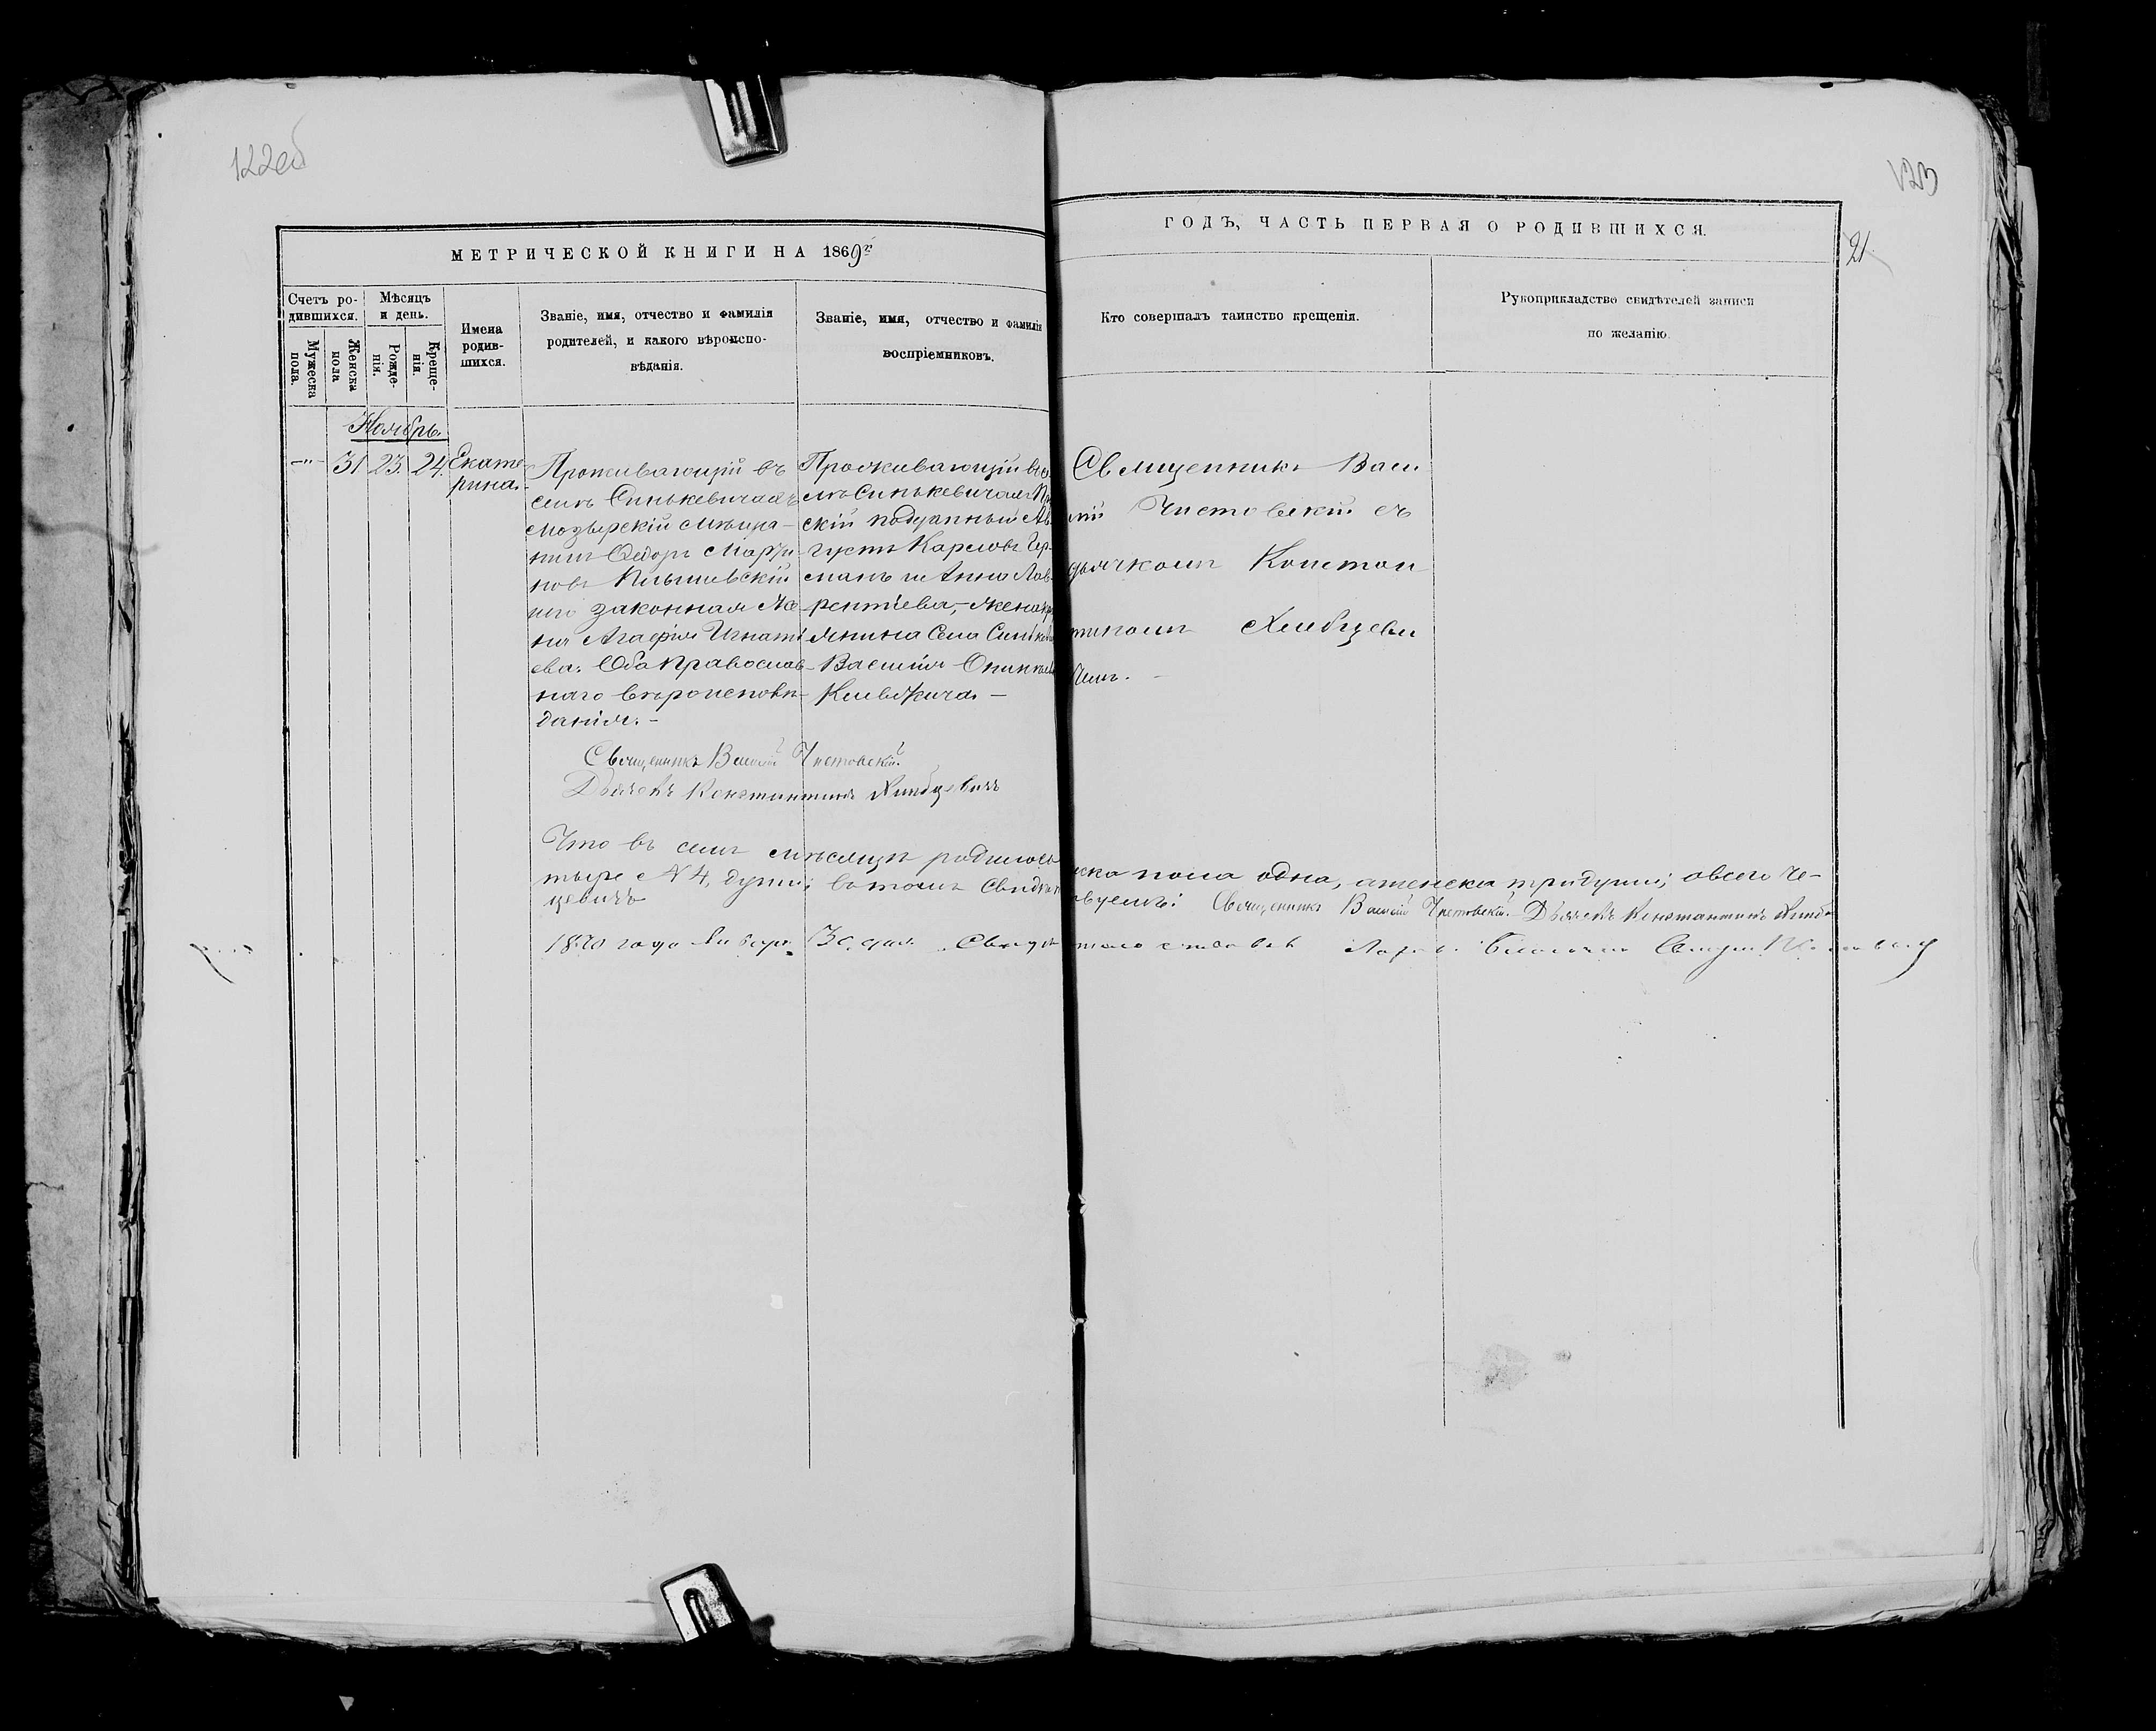 122об
123
МЕТРИЧЕСКОЙ КНИГИ НА 1869 г.
ГОДЪ, ЧАСТЬ ПЕРВАЯ О РОДИВШИХСЯ.
21
Счетъ ро-
дившихся.
Мужеска
пола.
Женска
пола
Мѣсяцъ
и день.
Рожде-
нія.
Креще-
нія.
Имена
родив-
шихся.
Званіе, имя, отчество и фамилія
родителей, и какого вѣроиспо-
вѣданія.
Званіе, имя, отчество и фамилія
воспріемниковъ.
Кто совершалъ таинство крещенія.
Рукоприкладство свидѣтелей записи
по желанію.
Ноябрь.
31 23. 24. Екате-
рина.
Проживающій въ
селѣ Синькевичахъ
мозырскій мѣща-
нинъ Ѳедоръ
новъ
его законная Же-
на Агафія Игнатi-
ева. Оба Православ-
наго вѣроисповѣ-
данія. –
Проживающій въ се-
лѣ Синькевичахъ
скій подданный Ав-
густъ Карловъ Гер-
манъ и Анна Лав-
рентіева, – жена
янина Села
Василія
–
Священникъ Васи
лій Чистовскій съ
дьячкомъ Констан
тиномъ Хлибцеви
чемъ. –
Священникъ Василій Чистовскій.
Дьячекъ Константинъ Хлибцевичъ
Что въ семъ мѣсяцѣ родилось
ска пола одна, а женска три души; а всего че-
тыре № 4, души; въ томъ свидѣтел
вуемъ: Священникъ Василій Чистовскій. Дьячекъ Константинъ Хлиб
цевичъ
1870 года Января 30 дня.